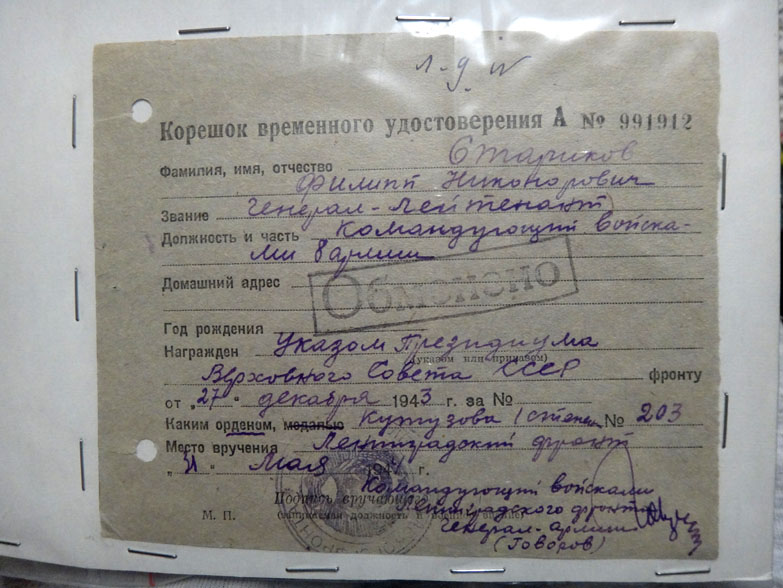 л-д №
Корешок временного удостоверения А № 991912
Фамилия, имя, отчество Стариков
Филипп Никонорович
Звание генерал-лейтенант
Должность и часть Командующий войска-
ми 8 армии
Домашний адрес
Обменено
Год рождения
Награжден Указом Президиума
(указом или приказом)
Верховного Совета СССР фронту
от „27“ декабря 1943 г. за №
Каким орденом, медалью Кутузова I степен № 203
Место вручения Ленинградский фронт
„31“ Мая 1944 г.
Командующий войсками
Подпись вручающего Ленинградского фронта
М. П. генерал-армии
(Говоров)